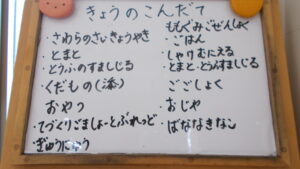 きょうのこんだて
・さわらのさいきょうやき
・とまと
・とうふのすましじる
・くだもの(添)
おやつ
・てづくりごましょーとぶれっど
ぎゅうにゅう
ももぐみごぜんしょく
・ごはん
・しゃけむにえる
・とまと・とうふすましじる
・ごごしょく
・おじや
・ばななきなこ